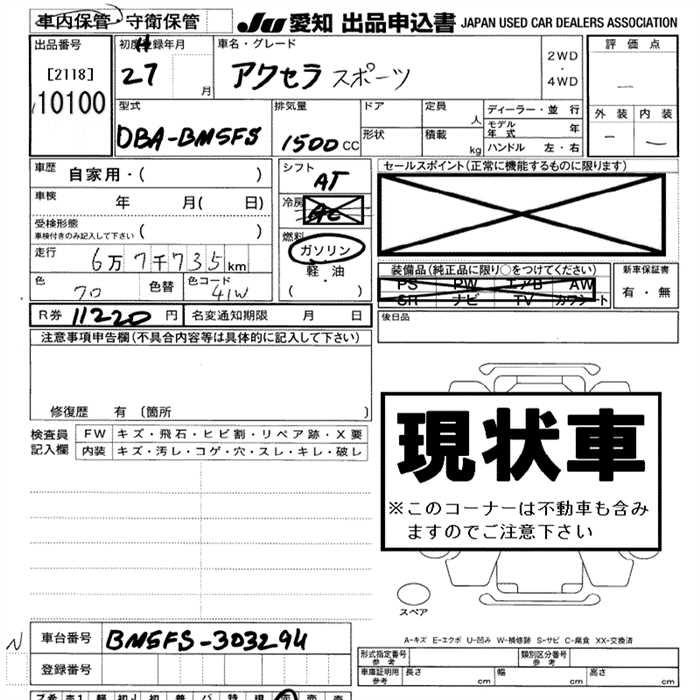 車内保管・守衛保管
JU 愛知 出品申込書 JAPAN USED CAR DEALERS ASSOCIATION
出品番号 初度登録年月 車名・グレード 評価点
[2118] H 27 月 アクセラ スポーツ 2WD・4WD
10100
外装 内装
型式 排気量 ドア 定員 人 ディーラー・並行
DBA-BM5FS 1500 CC 形状 積載 kg モデル年式 年
ハンドル 左・右
車歴 自家用・( ) シフト AT セールスポイント(正常に機能するものに限ります)
車検 年 月( 日) 冷房
受検形態 車検付きのみ記入して下さい ( ) 燃料 ガソリン
走行 6万7千735km 軽油 ・( )
装備品(純正品に限り○をつけてください) 新車保証書
PS PW エアB AW 有・無
SR ナビ TV カワシート
色 色替 色コード 41W
後日品
R券 11220円 名変通知期限 月 日
注意事項申告欄(不具合内容等は具体的に記入して下さい)
修復歴 有 〔箇所 〕
検査員記入欄 FW キズ・飛石・ヒビ割・リペア跡・X要
内装 キズ・汚レ・コゲ・穴・スレ・キレ・破レ
現状車
※このコーナーは不動車も含み
ますのでご注意下さい
スペア
A-キズ E-エクボ U-凹み W-補修跡 S-サビ C-腐食 XX-交換済
N 車台番号 BM5FS-303294
形式指定番号 参考 類別区分番号 参考
登録番号 車庫証明用 参考 長さ cm 幅 cm 高さ cm